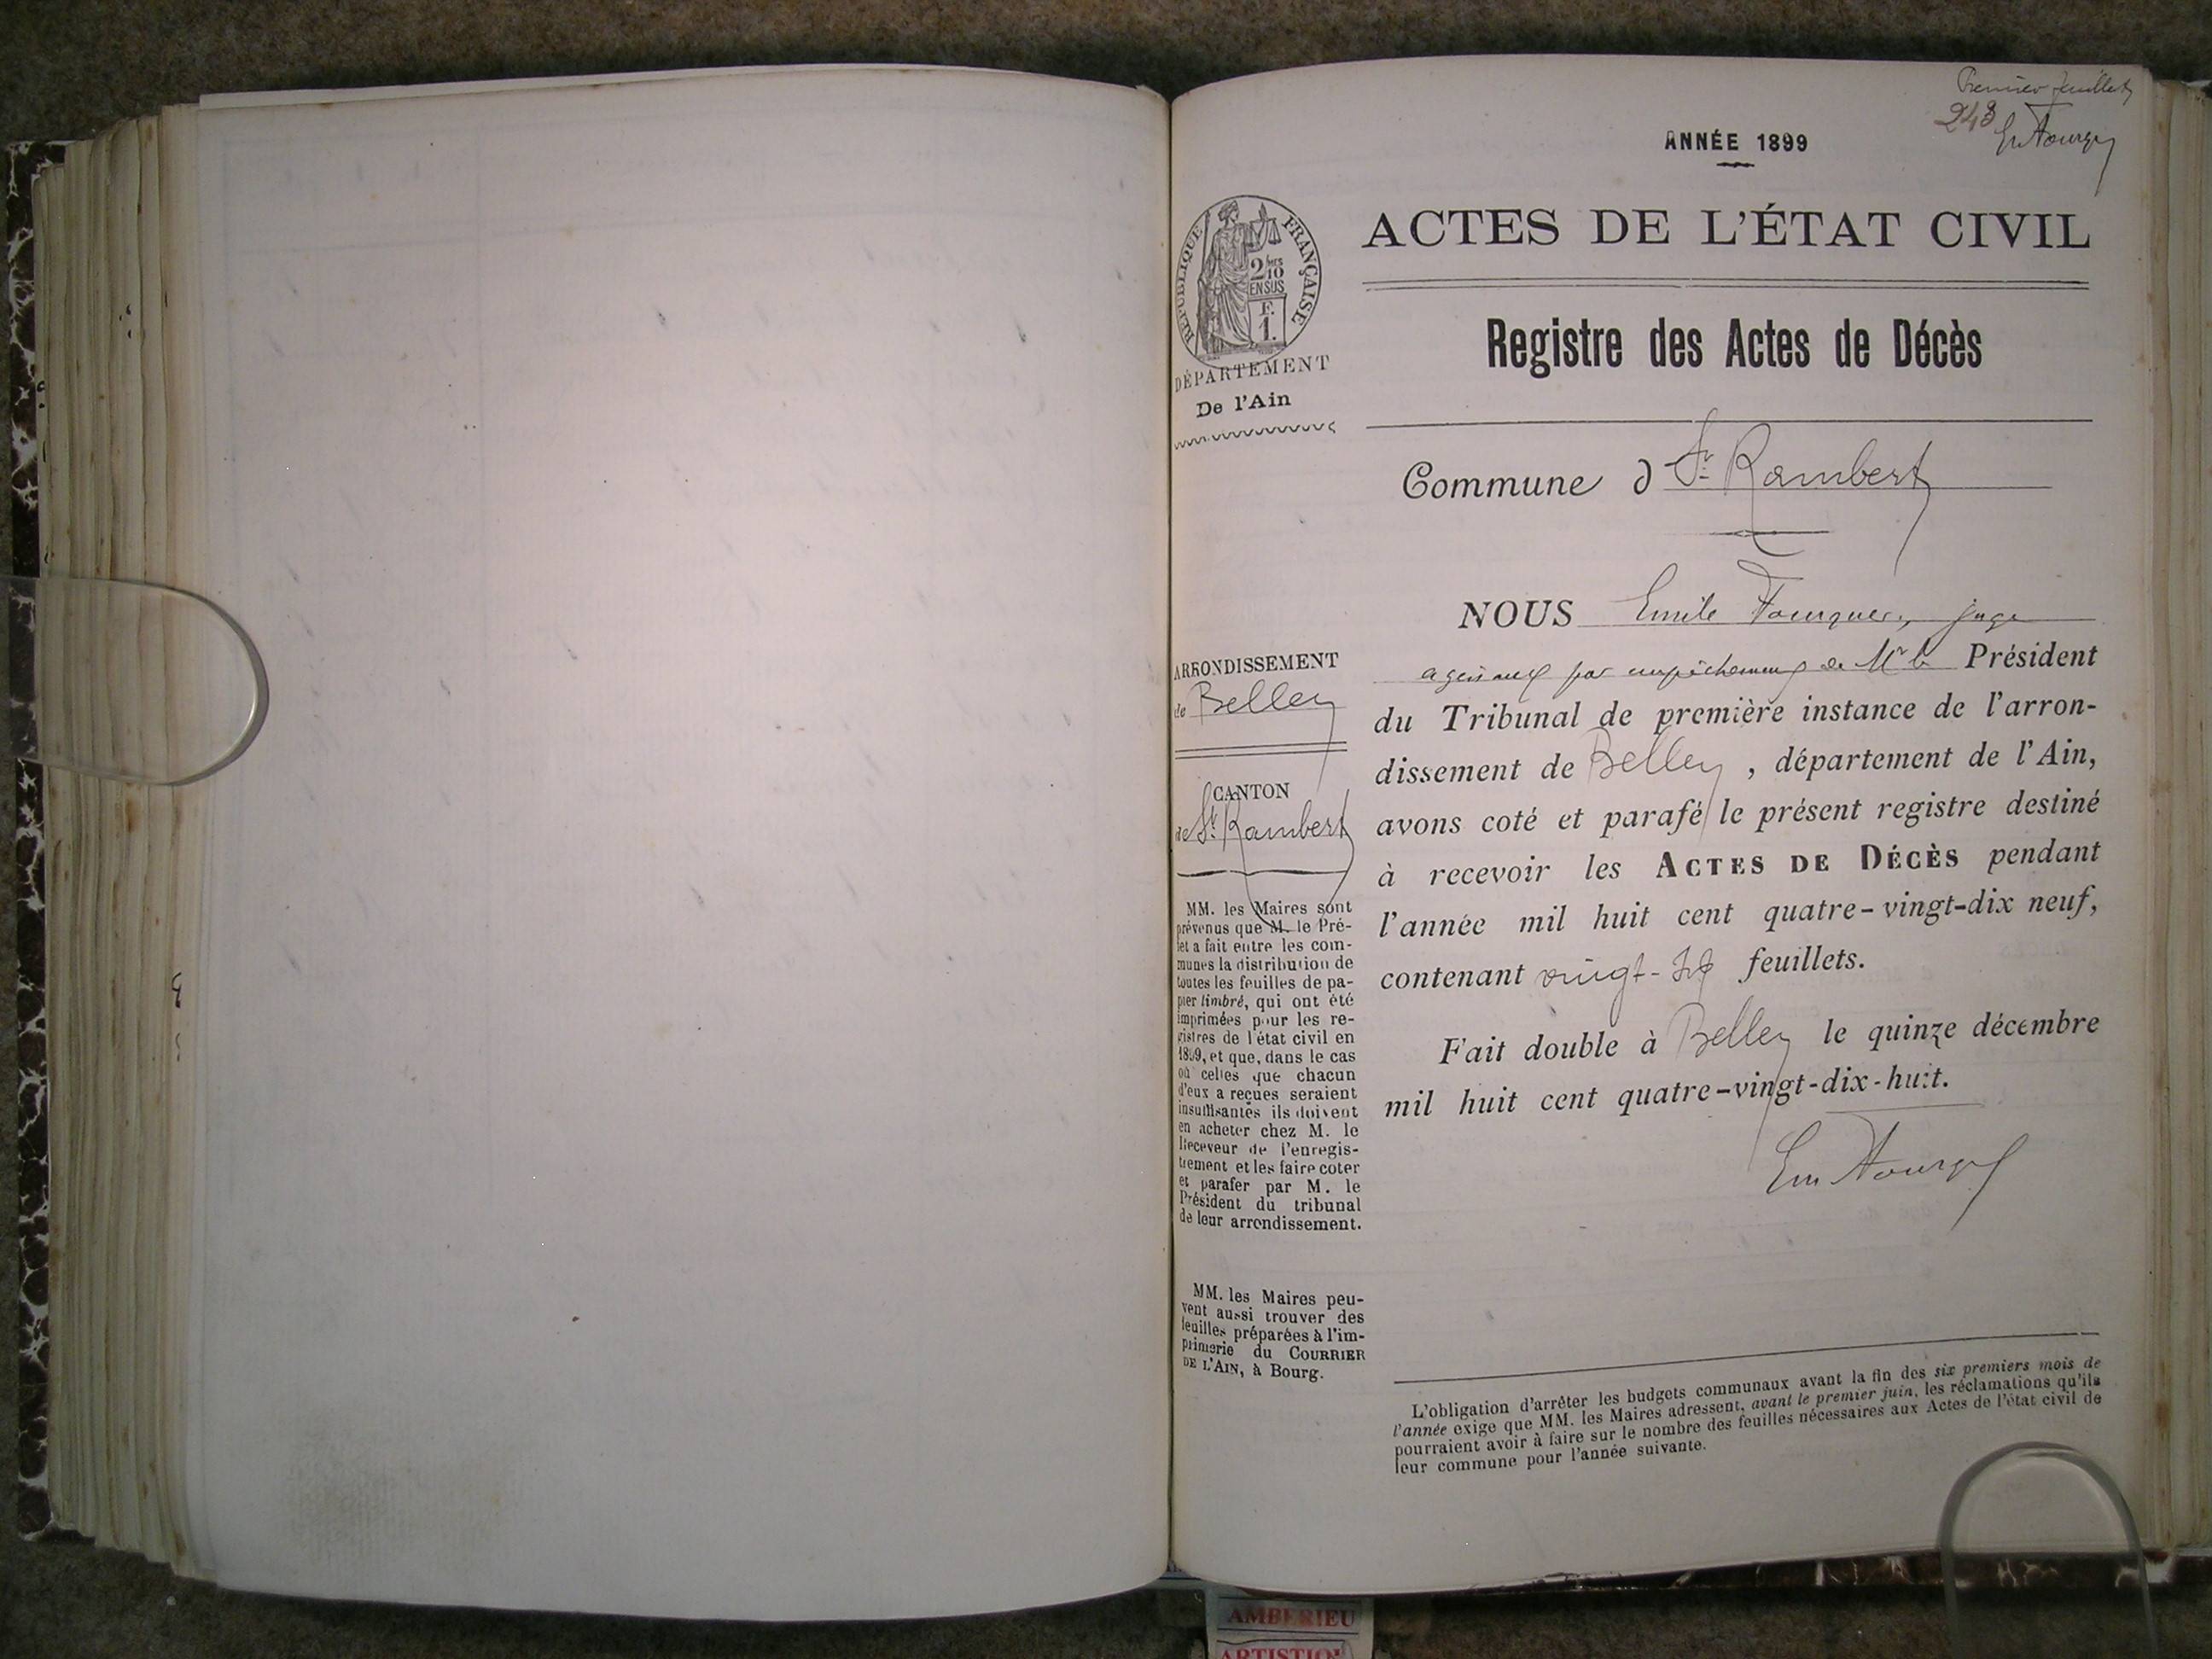 Premier feuillet
243
Em Fourq
ANNÉE 1899
RÉPUBLIQUE FRANÇAISE
2/10 EN SUS
F.
1.
ACTES DE L'ÉTAT CIVIL
Registre des Actes de Décès
DÉPARTEMENT
De l'Ain
Commune d St Rambert
NOUS Emile juge
agissant par empêchement de Mr le Président
du Tribunal de première instance de l'arron-
dissement de Belley, département de l'Ain,
avons coté et parafé le présent registre destiné
à recevoir les ACTES DE DÉCÈS pendant
l'année mil huit cent quatre-vingt-dix neuf,
contenant vingt- feuillets.
Fait double à Belley le quinze décembre
mil huit cent quatre-vingt-dix-huit.
Em Fourq
ARRONDISSEMENT
de Belley
CANTON
de St Rambert
MM. les Maires sont
prévenus que M. le Pré-
fet a fait entre les com-
munes la distribution de
toutes les feuilles de pa-
pier timbré, qui ont été
imprimées pour les re-
gistres de l'état civil en
1899, et que, dans le cas
où celles que chacun
d'eux a reçues seraient
insuffisantes ils doivent
en acheter chez M. le
Receveur de l'enregis-
trement et les faire coter
et parafer par M. le
Président du tribunal
de leur arrondissement.
MM. les Maires peu-
vent aussi trouver des
feuilles préparées à l'im-
primerie du COURRIER
DE L'AIN, à Bourg.
L'obligation d'arrêter les budgets communaux avant la fin des six premiers mois de
l'année exige que MM. les Maires adressent, avant le premier juin, les réclamations qu'ils
pourraient avoir à faire sur le nombre des feuilles nécessaires aux Actes de l'état civil de
leur commune pour l'année suivante.
AMBERIEU